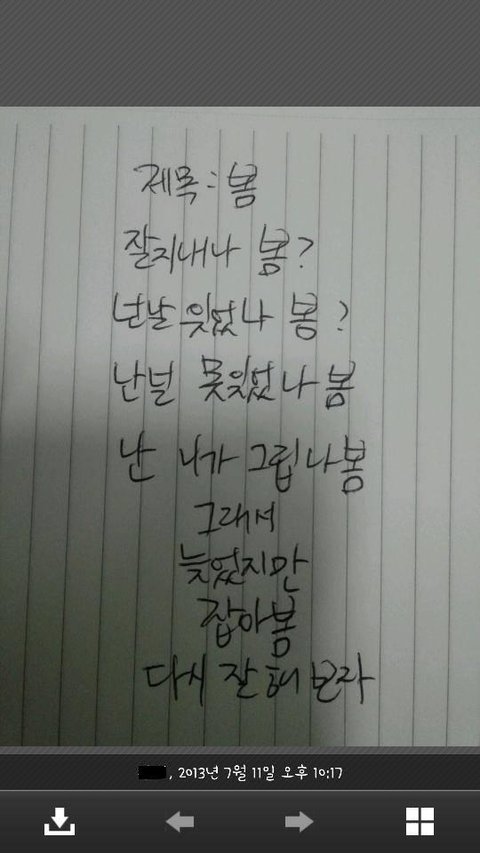 제목 : 봄
잘지내나 봄?
넌날 잊었나 봄?
난널 못잊었나 봄
난 니가 그립나봄
그래서
늦었지만
잡아봄
다시 잘 해 보자
, 2013년 7월 11일 오후 10:17